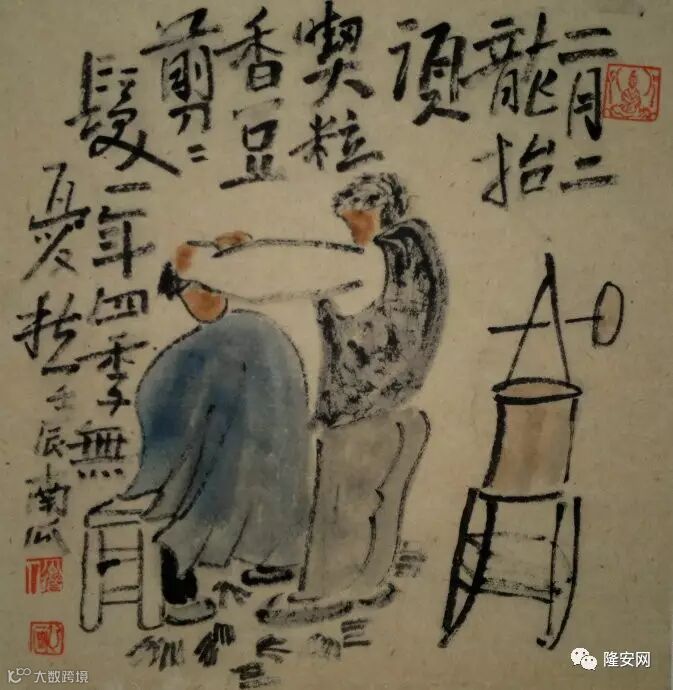 二月二
龍抬
頭
喫粒
香豆
剪二
髮一年四季無
憂 壬辰南瓜
大数跨境
隆安网